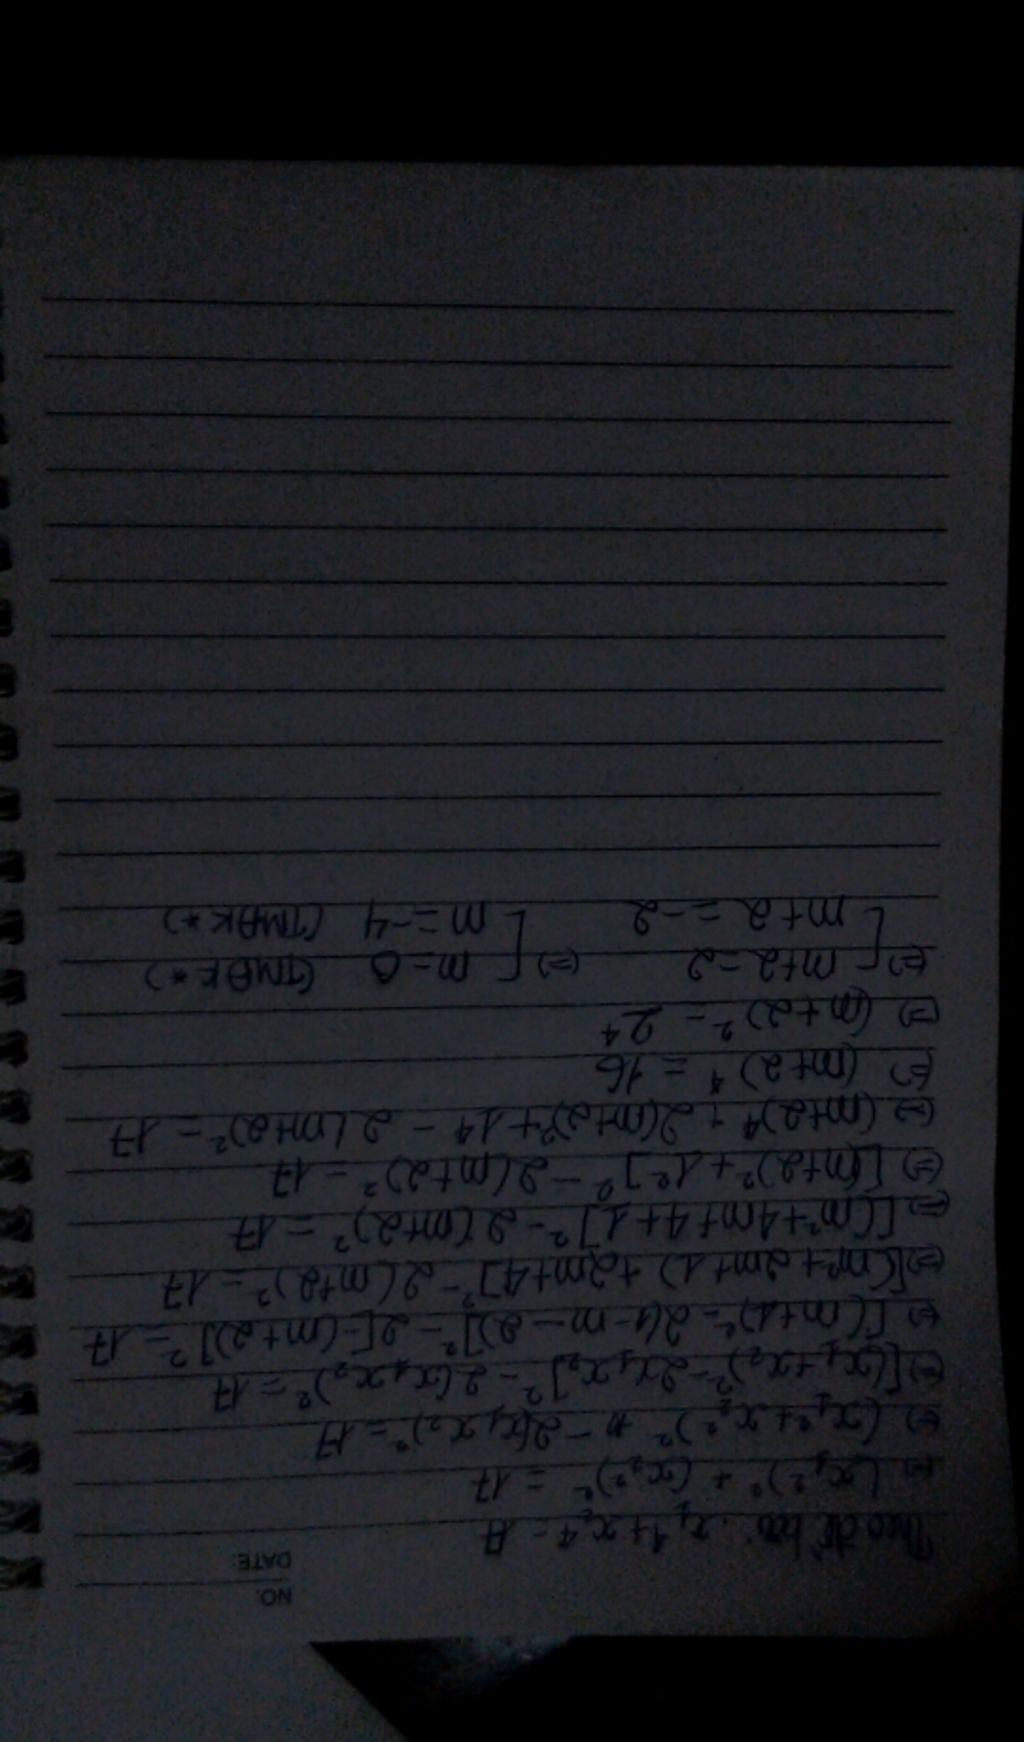 NO.
DATE:
Theo đề bài: x₁⁴ + x₂⁴ = 17
⇔ (x₁²)² + (x₂²)² = 17
⇔ (x₁² + x₂²)² - 2(x₁x₂)² = 17
⇔ [(x₁+x₂)² - 2x₁x₂]² - 2(x₁x₂)² = 17
⇔ [(m+1)² - 2(-m-2)]² - 2[-(m+2)]² = 17
⇔ [(m²+2m+1)+2m+4]² - 2(m+2)² = 17
⇔ [(m²+4m+4+1]² - 2(m+2)² = 17
⇔ [(m+2)² + 1²]² - 2(m+2)² = 17
⇔ (m+2)⁴ + 2(m+2)² + 1⁴ - 2(m+2)² = 17
⇔ (m+2)⁴ = 16
⇔ (m+2)² = 2⁴
⇔ [ m+2 = 2 ⇔ [ m = 0 (TMĐK *)
[ m+2 = -2 [ m = -4 (TMĐK *)